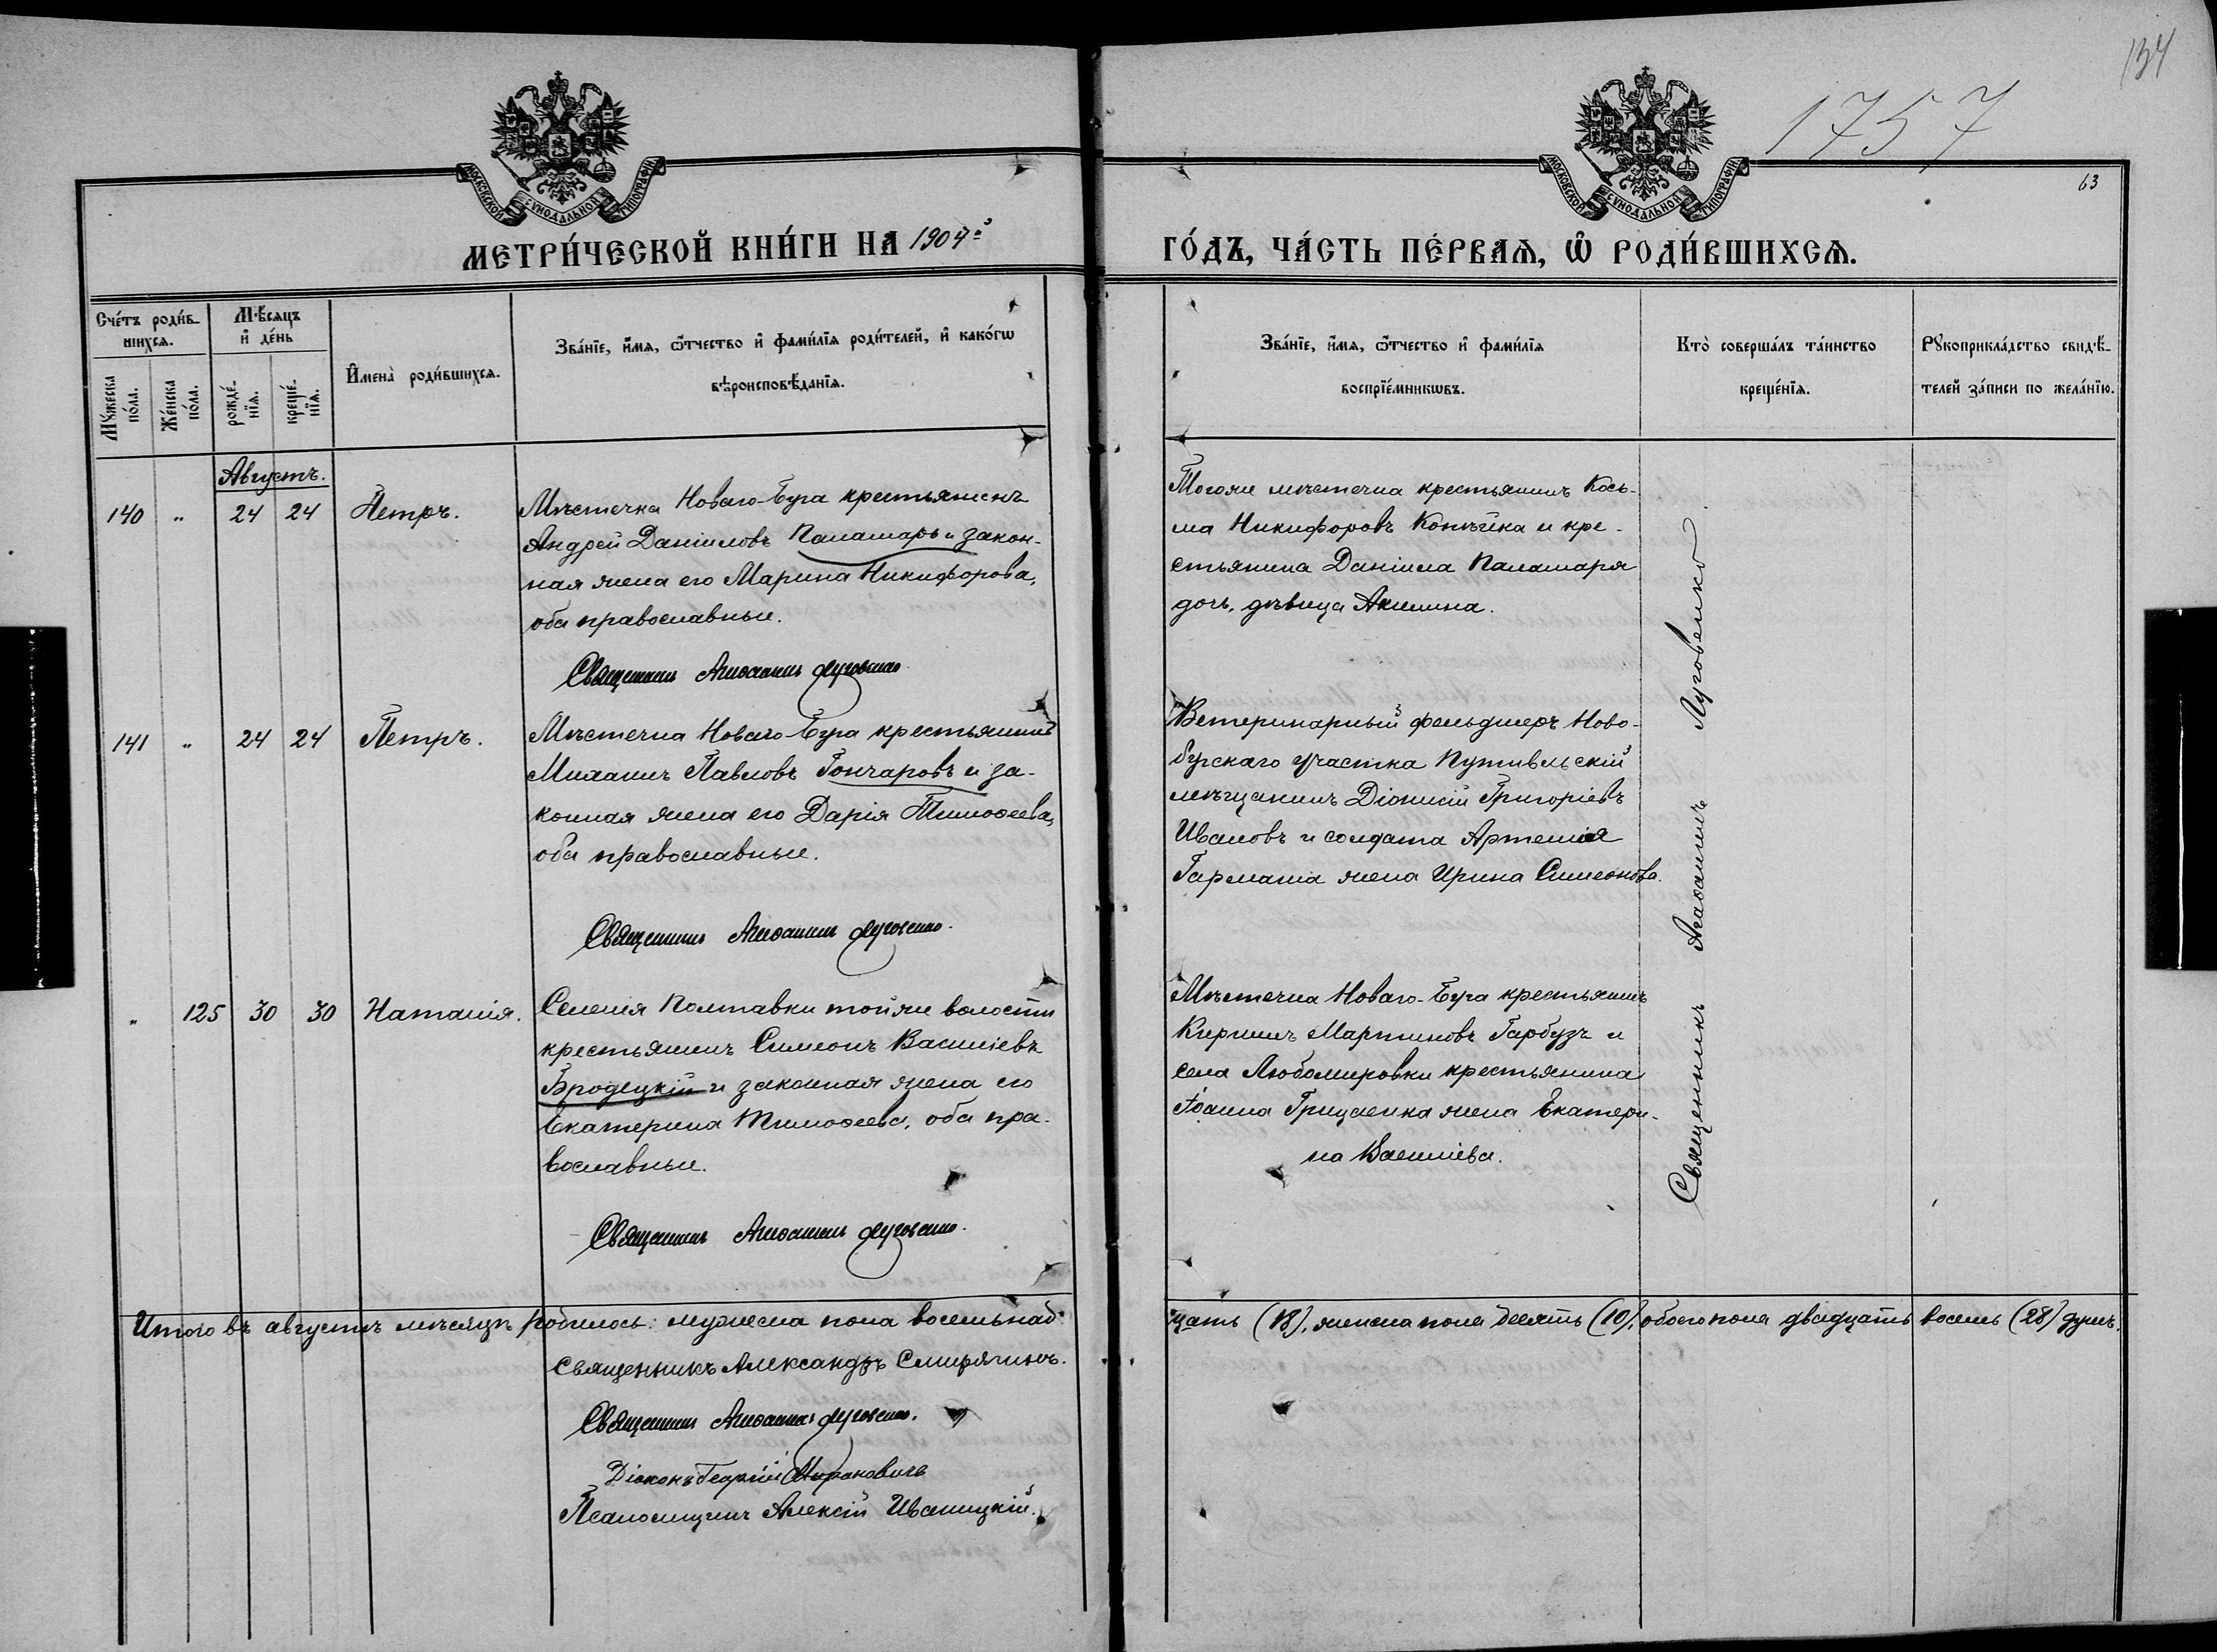 134
1757
63
МОСКОВСКОЙ СѴНОДАЛЬНОЙ ТИПОГРАФІИ
МОСКОВСКОЙ СѴНОДАЛЬНОЙ ТИПОГРАФІИ
МЕТРИ́ЧЕСКОЙ КНИ́ГИ НА 1904й
ГО́ДЪ, ЧА́СТЬ ПЕ́РВАѦ, Ѡ҆ РОДИ́ВШИХСѦ.
Сче́тъ роди́в-
шихсѧ.
Мꙋ́жеска по́ла.
Же́нска по́ла.
Мѣ́сѧцъ
и҆ де́нь
рожде́-
нїѧ.
креще́-
нїѧ.
И҆мена̀ роди́вшихсѧ.
Зва́нїе, и҆́мѧ, ѻ҆́тчество и҆ фами́лїѧ роди́телей, и҆ како́гѡ
вѣроисповѣ́данїѧ.
Зва́нїе, и҆́мѧ, ѻ҆́тчество и҆ фами́лїѧ
воспрїе́мникѡвъ.
Кто̀ соверша́лъ та́инство
креще́нїѧ.
Рꙋкоприкла́дство свидѣ́-
телей за́писи по жела́нїю.
Августъ.
140 " 24 24 Петръ.
Мѣстечка Новаго-Буга крестьянинъ
Андрей Даніиловъ Паламарь и закон-
ная жена его Марина Никифорова,
оба православные.
Священникъ Агаѳангелъ Луговенко
Тогоже мѣстечка крестьянинъ Кось-
ма Никифоровъ Копѣйка и кре-
стьянина Даніила Паламаря
дочь, дѣвица Акилина.
141 " 24 24 Петръ.
Мѣстечка Новаго-Буга крестьянинъ
Михаилъ Павловъ Гончаровъ и за-
конная жена его Дарія Тимоѳеева,
оба православные.
Священникъ Агаѳангелъ Луговенко.
Ветеринарный фельдшеръ Ново-
бугскаго участка Путивльскій
мѣщанинъ Діонисій Григоріевъ
Ивановъ и солдата Артемія
Гармаша жена Ирина Симеонова.
" 125 30 30 Наталія.
Селенія Полтавки тойже волости
крестьянинъ Симеонъ Василіевъ
Бродецкій и законная жена его
Екатерина Тимоѳеева, оба пра-
вославные.
Священникъ Агаѳангелъ Луговенко.
Мѣстечка Новаго-Буга крестьянинъ
Кириллъ Мартиновъ Гарбузъ и
села Любомировки крестьянина
Іоанна Гриценка жена Екатери-
на Василіева.
Священникъ Луговенко
Итого въ августѣ мѣсяцѣ родилось: мужеска пола восемьнад-
цать (18), женска пола десять (10), обоего пола двадцать восемь (28) душъ.
Священникъ Александръ Смирягинъ.
Священникъ Агаѳангелъ Луговенко.
Діаконъ Георгій
Псаломщикъ Алексій Иваницкій.